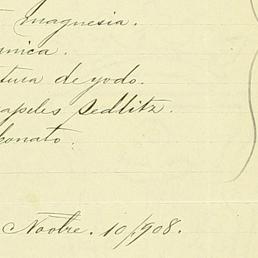 magnesia.
nica.
tura de yodo.
apeles Sedlitz.
bonato.
Novbre. 10/908.